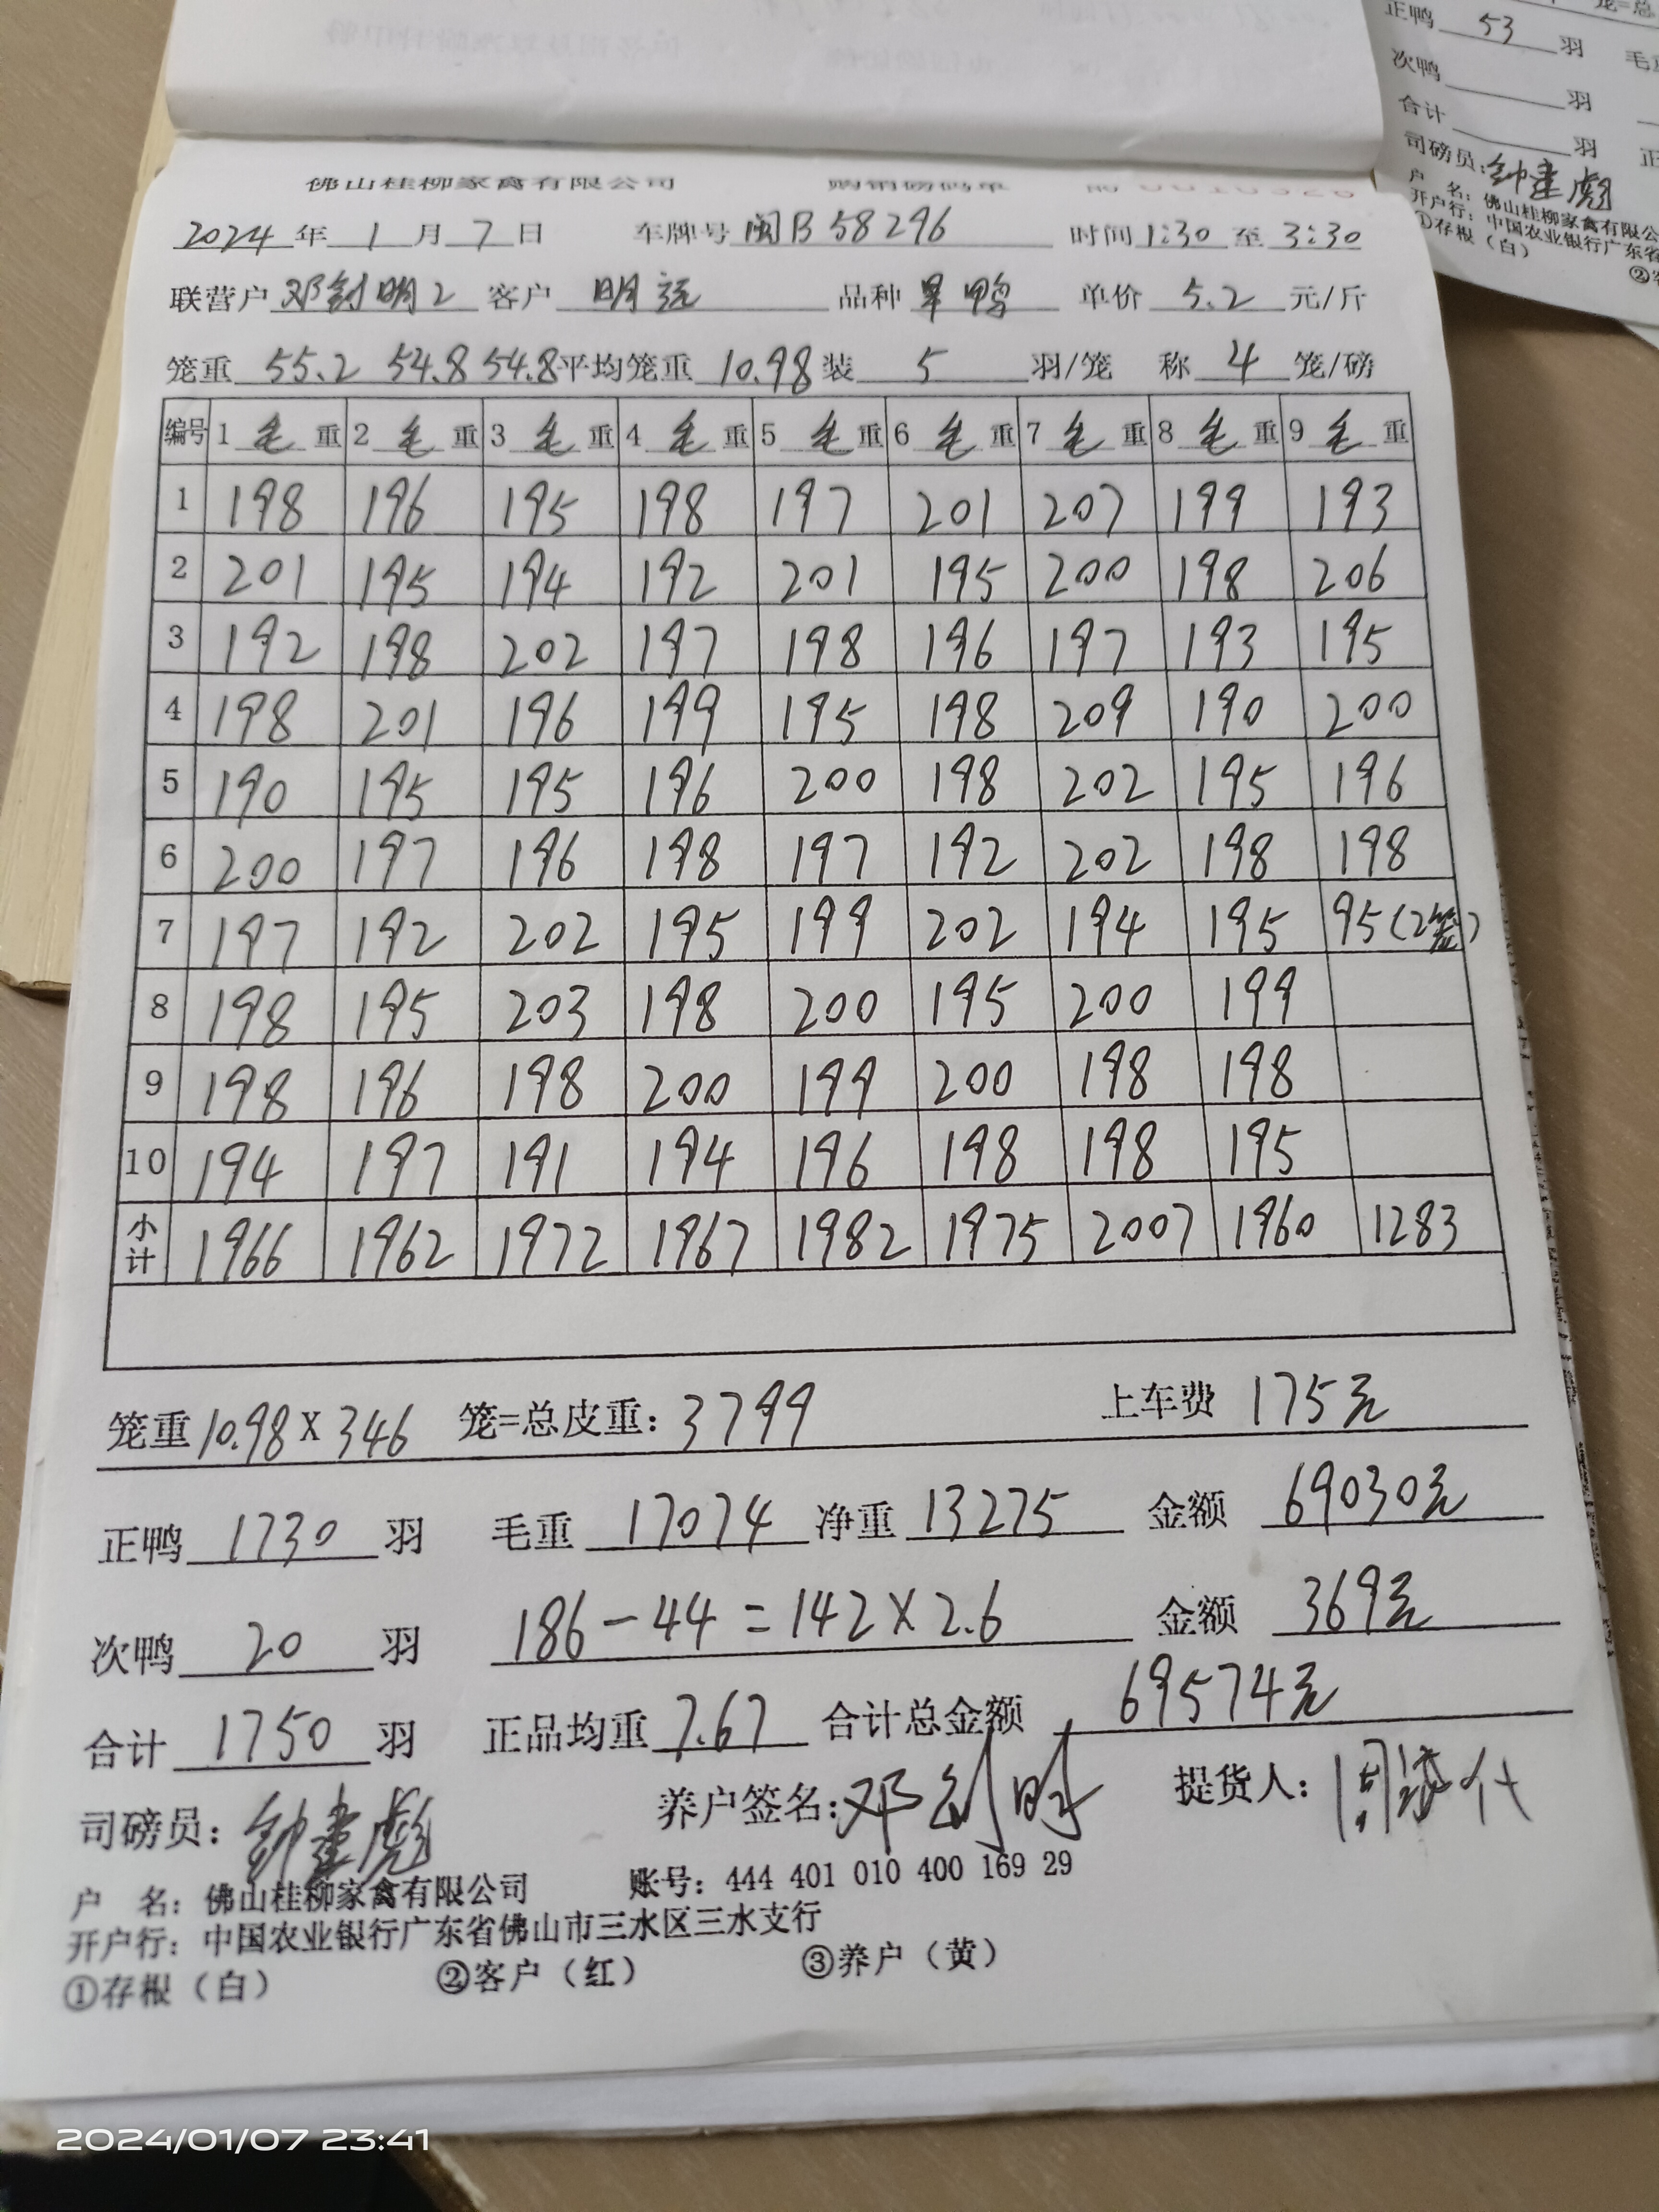 笼=总
正鸭 53 羽
次鸭 羽
合计 羽
司磅员:钟建彪
户 名:佛山桂柳家禽有限公
开户行:中国农业银行广东省
①存根(白)
佛山桂柳家禽有限公司 购销磅码单
2024年1月7日 车牌号 闽B58296 时间1:30至3:30
联营户 邓剑明2 客户 明 品种 旱鸭 单价 5.2 元/斤
笼重 55.2 54.8 54.8 平均笼重 10.98 装 5 羽/笼 称 4 笼/磅
编号 1 毛 重 2 毛 重 3 毛 重 4 毛 重 5 毛 重 6 毛 重 7 毛 重 8 毛 重 9 毛 重
1 198 196 195 198 197 201 207 199 193
2 201 195 194 192 201 195 200 198 206
3 192 198 202 197 198 196 197 193 195
4 198 201 196 199 195 198 209 190 200
5 190 195 195 196 200 198 202 195 196
6 200 197 196 198 197 192 202 198 198
7 197 192 202 195 199 202 194 195 95(2笼)
8 198 195 203 198 200 195 200 199
9 198 196 198 200 199 200 198 198
10 194 197 191 194 196 198 198 195
小计 1966 1962 1972 1967 1982 1975 2007 1960 1283
笼重10.98×346 笼=总皮重:3799 上车费 175元
正鸭 1730 羽 毛重 17074 净重 13275 金额 69030元
次鸭 20 羽 186-44=142×2.6 金额 369元
合计 1750 羽 正品均重 7.67 合计总金额 69574元
司磅员:钟建彪 养户签名:邓剑明 提货人:周 代
户 名:佛山桂柳家禽有限公司 账号:444 401 010 400 169 29
开户行:中国农业银行广东省佛山市三水区三水支行
①存根(白) ②客户(红) ③养户(黄)
2024/01/07 23:41